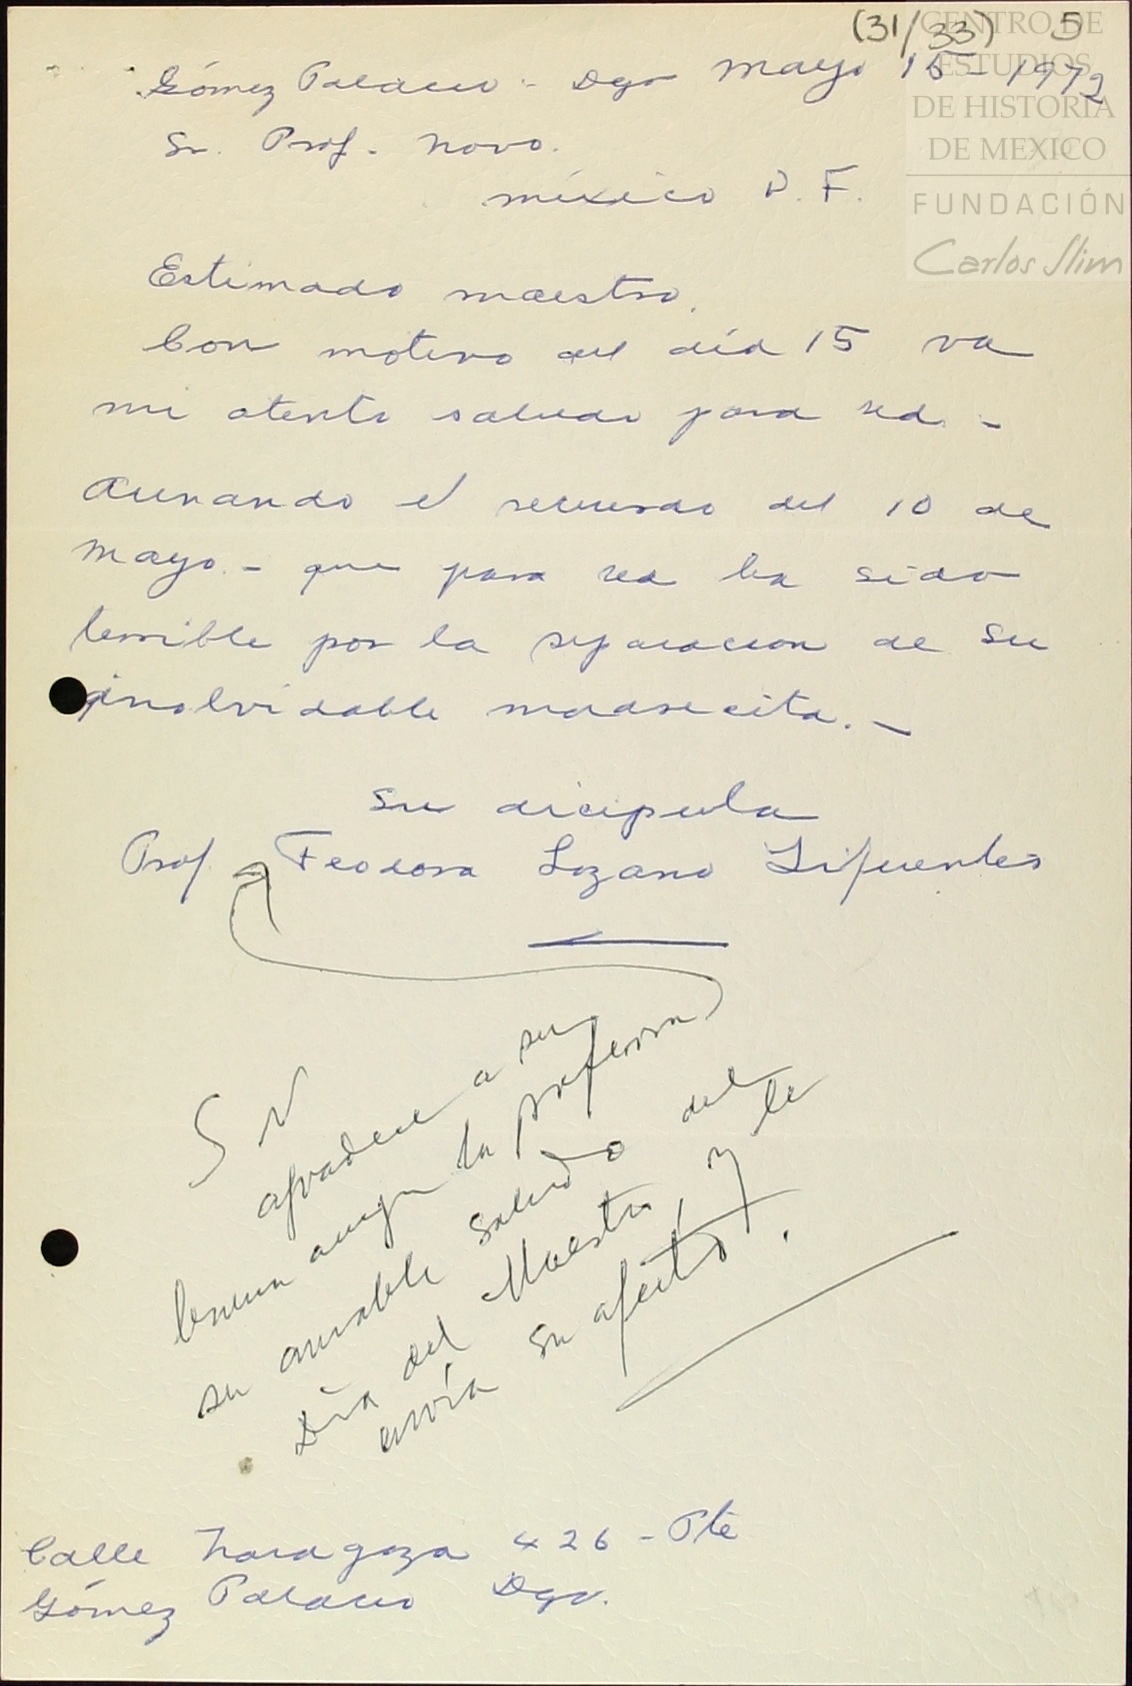 (31/33) 5
CENTRO DE
ESTUDIOS
DE HISTORIA
DE MEXICO
FUNDACIÓN
Carlos Slim
Gómez Palacio - Dgo Mayo 15 - 1972
Sr. Prof. Novo.
México D. F.
Estimado maestro.
Con motivo del día 15 va
mi atento saludo para ud. -
Aunando el recuerdo del 10 de
Mayo. - que para ud ha sido
terrible por la separacion de su
inolvidable madrecita. -
Su dicipula
Prof. Feodora Lozano Sifuentes
SN
agradece a su
buena amiga la profesora
su amable saludo del
Día del Maestro, y le
envía su afecto.
Calle Zaragoza 426 - Pte
Gómez Palacio Dgo.